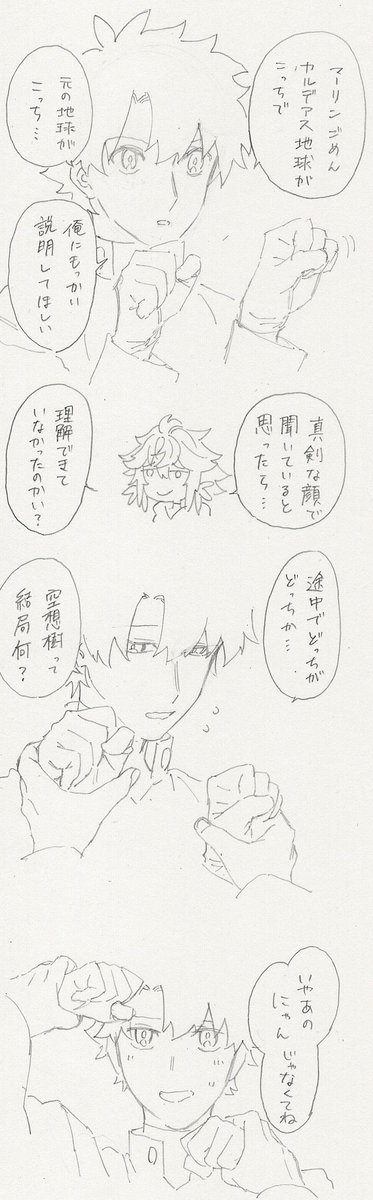 マーリンごめん
カルデアス地球が
こっちで
元の地球が
こっち…
俺にもっかい
説明してほしい
真剣な顔で
聞いていると
思ったら…
理解できて
いなかったのかい?
途中でどっちが
どっちか…
空想樹って
結局何?
いやあの
にゃんじゃなくてね